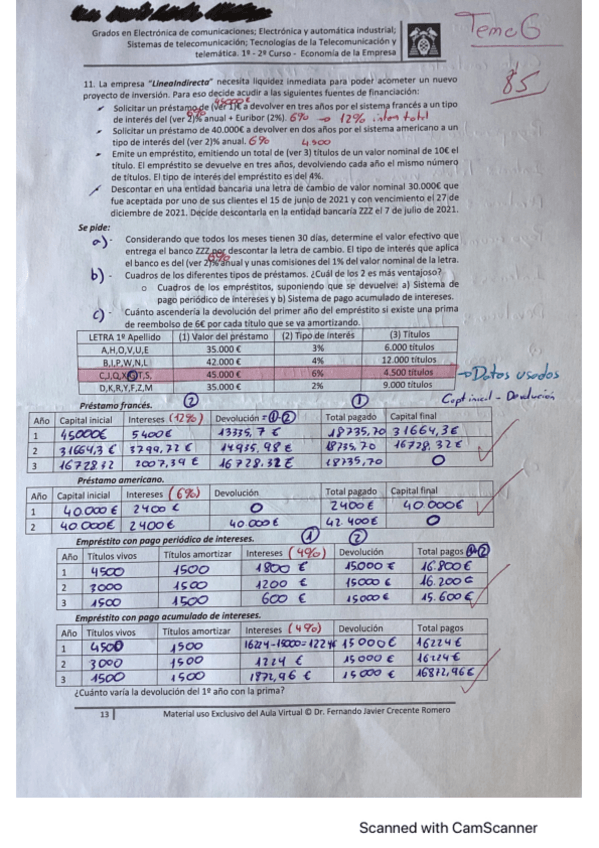 Grados en Electrónica de comunicaciones; Electrónica y automática industrial;
Sistemas de telecomunicación; Tecnologías de la Telecomunicación y
telemática. 1º - 2º Curso - Economía de la Empresa
Tema 6
85
11. La empresa “LineaIndirecta” necesita liquidez inmediata para poder acometer un nuevo
proyecto de inversión. Para eso decide acudir a las siguientes fuentes de financiación:
45000€
Solicitar un préstamo de (ver 1)€ a devolver en tres años por el sistema francés a un tipo
de interés del (ver 2)% anual + Euribor (2%). 6% → 12%
6%
Solicitar un préstamo de 40.000€ a devolver en dos años por el sistema americano a un
tipo de interés del (ver 2)% anual. 6%
4.500
Emite un empréstito, emitiendo un total de (ver 3) títulos de un valor nominal de 10€ el
título. El empréstito se devuelve en tres años, devolviendo cada año el mismo número
de títulos. El tipo de interés del empréstito es del 4%.
Descontar en una entidad bancaria una letra de cambio de valor nominal 30.000€ que
fue aceptada por uno de sus clientes el 15 de junio de 2021 y con vencimiento el 27 de
diciembre de 2021. Decide descontarla en la entidad bancaria ZZZ el 7 de julio de 2021.
Se pide:
a) - Considerando que todos los meses tienen 30 días, determine el valor efectivo que
entrega el banco ZZZ por descontar la letra de cambio. El tipo de interés que aplica
6%
el banco es del (ver 2)% anual y unas comisiones del 1% del valor nominal de la letra.
b) - Cuadros de los diferentes tipos de préstamos. ¿Cuál de los 2 es más ventajoso?
o Cuadros de los empréstitos, suponiendo que se devuelve: a) Sistema de
pago periódico de intereses y b) Sistema de pago acumulado de intereses.
c) - Cuánto ascendería la devolución del primer año del empréstito si existe una prima
de reembolso de 6€ por cada título que se va amortizando.
LETRA 1º Apellido (1) Valor del préstamo (2) Tipo de interés (3) Títulos
A,H,O,V,U,E 35.000 € 3% 6.000 títulos
B,I,P,W,N,L 42.000 € 4% 12.000 títulos
C,J,Q,X,G,T,S, 45.000 € 6% 4.500 títulos → Datos usados
D,K,R,Y,F,Z,M 35.000 € 2% 9.000 títulos
Préstamo francés. ② ① Capt inicial - Devolución
Año Capital inicial Intereses (12%) Devolución = ①-② Total pagado Capital final
1 45000€ 5400€ 13335,7 € 18735,70 31664,3€
2 31664,3 € 3799,72 € 14935,98 € 18735,70 16728,32 €
3 16728,32 2007,39 € 16728.32 € 18735,70 0
Préstamo americano.
Año Capital inicial Intereses (6%) Devolución Total pagado Capital final
1 40000 € 2400 € 0 2400 € 40.000€
2 40 000€ 2400 € 40 000€ 42 400€ 0
Empréstito con pago periódico de intereses. ① ②
Año Títulos vivos Títulos amortizar Intereses (4%) Devolución Total pagos ①-②
1 4500 1500 1800 € 15000 € 16.800€
2 3000 1500 1200 € 15000 € 16.200 €
3 1500 1500 600 € 15000€ 15.600€
Empréstito con pago acumulado de intereses.
Año Títulos vivos Títulos amortizar Intereses (4%) Devolución Total pagos
1 4500 1500 16224-15000=1224€ 15000€ 16224€
2 3000 1500 1224 € 15000 € 16224€
3 1500 1500 1872,96 € 15000€ 16872,96€
¿Cuánto varía la devolución del 1º año con la prima?
13 Material uso Exclusivo del Aula Virtual © Dr. Fernando Javier Crecente Romero
Scanned with CamScanner